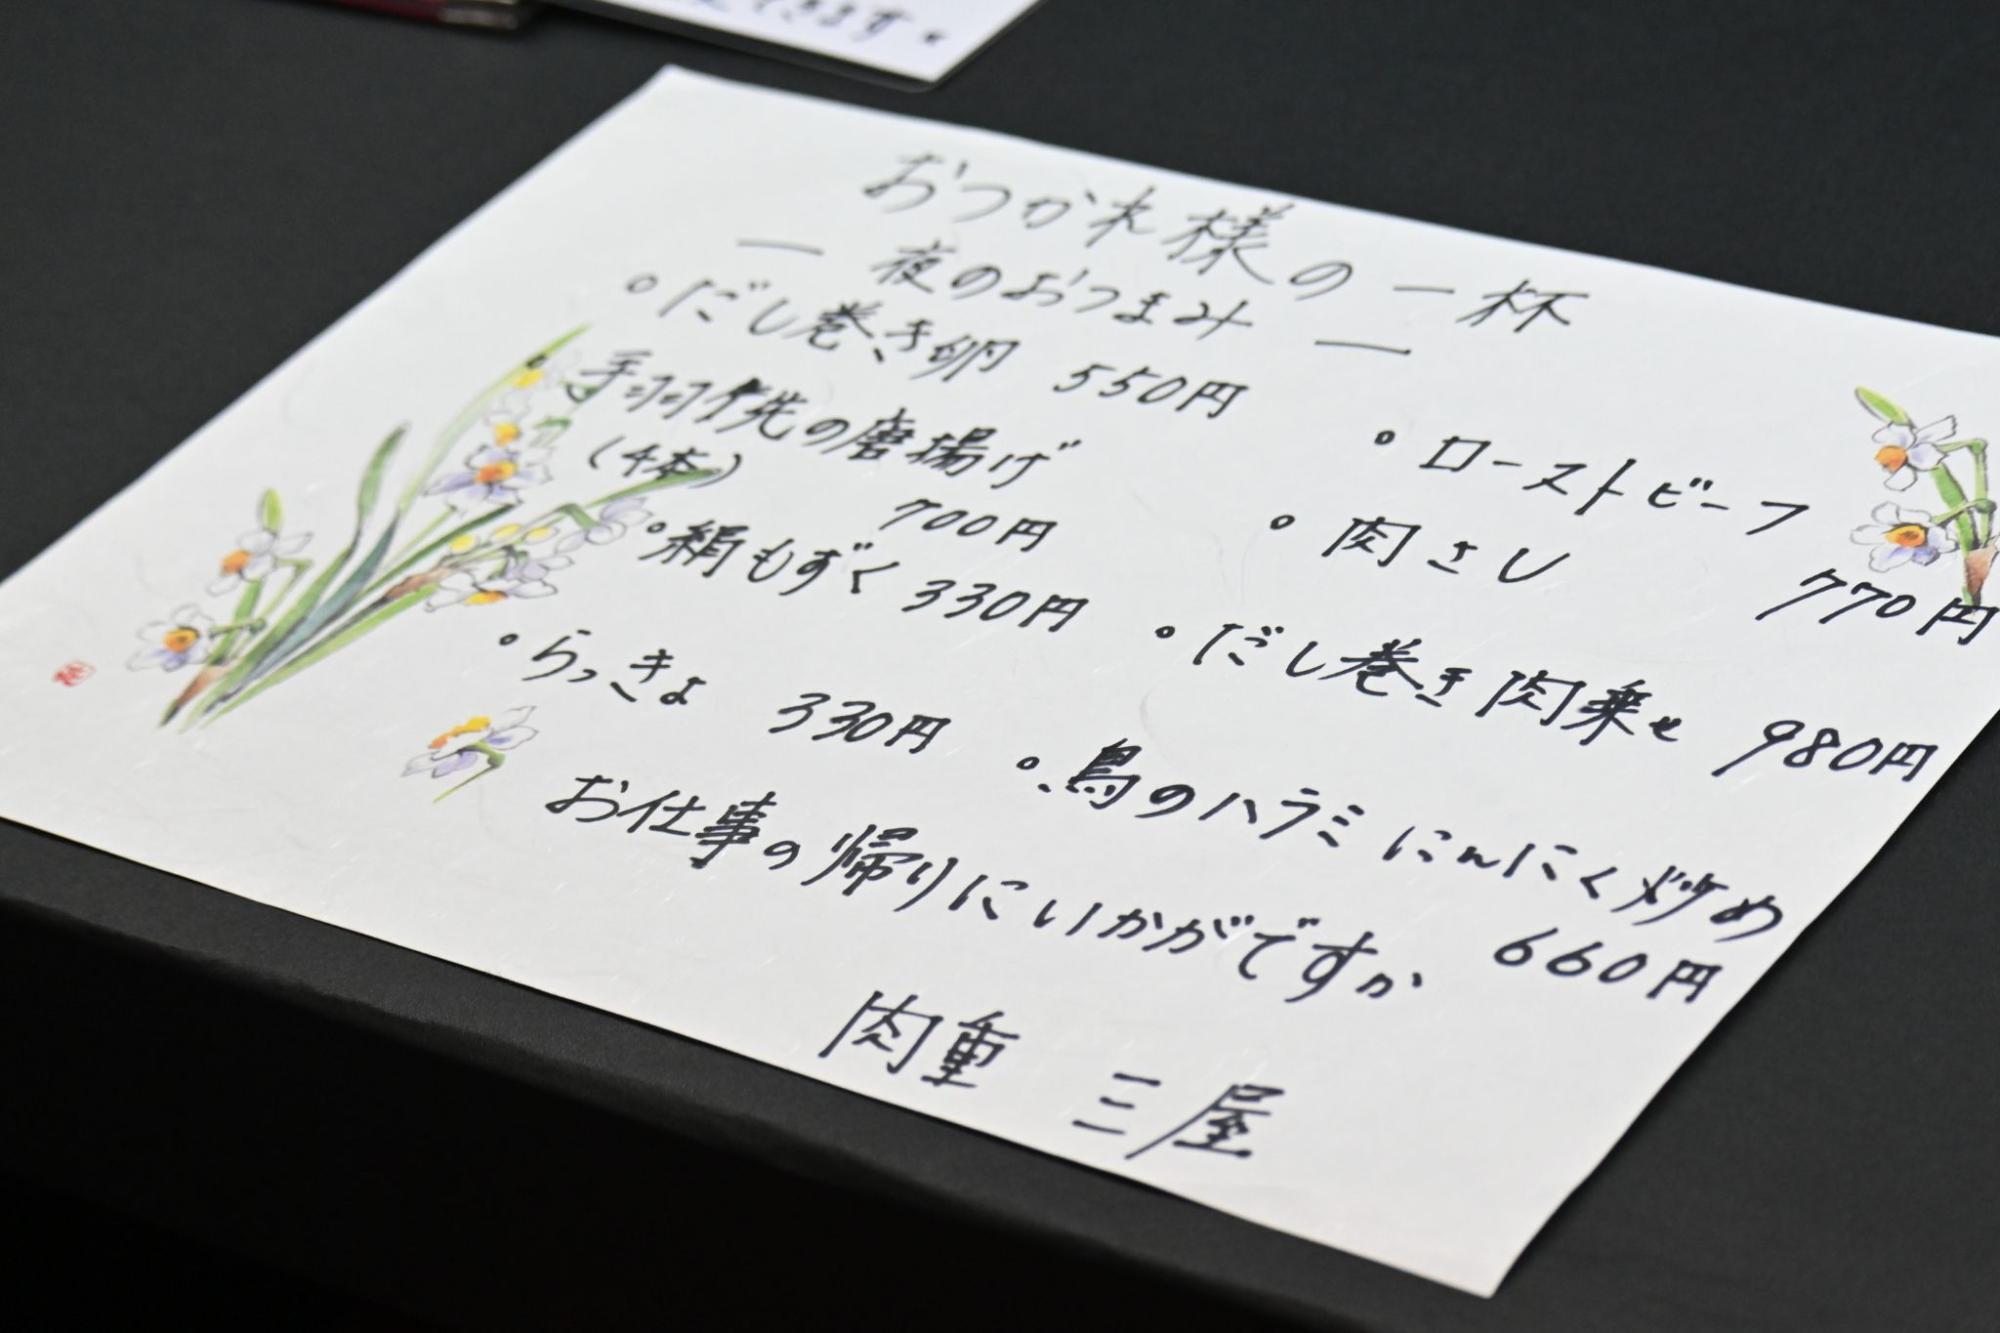 おつかれ様の一杯
― 夜のおつまみ ―
。だし巻き卵 550円
手羽先の唐揚げ
(4本)
700円
。絹もずく 330円
。らっきょ 330円
。ローストビーフ
。肉さし
770円
。だし巻き肉乗せ 980円
。鳥のハラミにんにく炒め
660円
お仕事の帰りにいかがですか
肉重 三屋